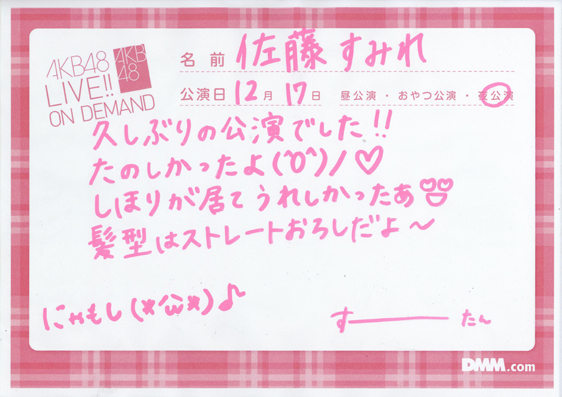 AKB48
LIVE!!
ON DEMAND
AKB
48
名前 佐藤すみれ
公演日 12月 17日 昼公演・おやつ公演・夜公演
久しぶりの公演でした!!
たのしかったよ(^o^)/♡
しほりが居てうれしかったあ
髪型はストレートおろしだよ〜
にゃもし(*^ω^*)♪
すーーーたん
DMM.com